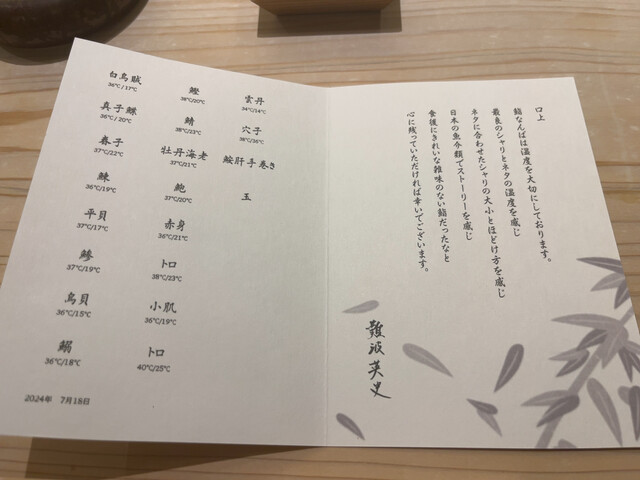 白烏賊
36℃/17℃
真子鰈
36℃/20℃
春子
37℃/22℃
鰊
36℃/19℃
平貝
37℃/17℃
鯵
37℃/19℃
鳥貝
36℃/15℃
鰯
36℃/18℃
鰹
38℃/20℃
鯖
38℃/23℃
牡丹海老
37℃/21℃
鮑
37℃/20℃
赤身
36℃/21℃
トロ
38℃/23℃
小肌
36℃/19℃
トロ
40℃/25℃
雲丹
34℃/14℃
穴子
38℃/36℃
鮟肝手巻き
玉
2024年 7月18日
口上
鮨なんばは温度を大切にしております。
最良のシャリとネタの温度を感じ
ネタに合わせたシャリの大小とほどけ方を感じ
日本の魚今額でストーリーを感じ
食後にきれいな雑味のない鮨だったなと
心に残っていただければ幸いでございます。
難波英史